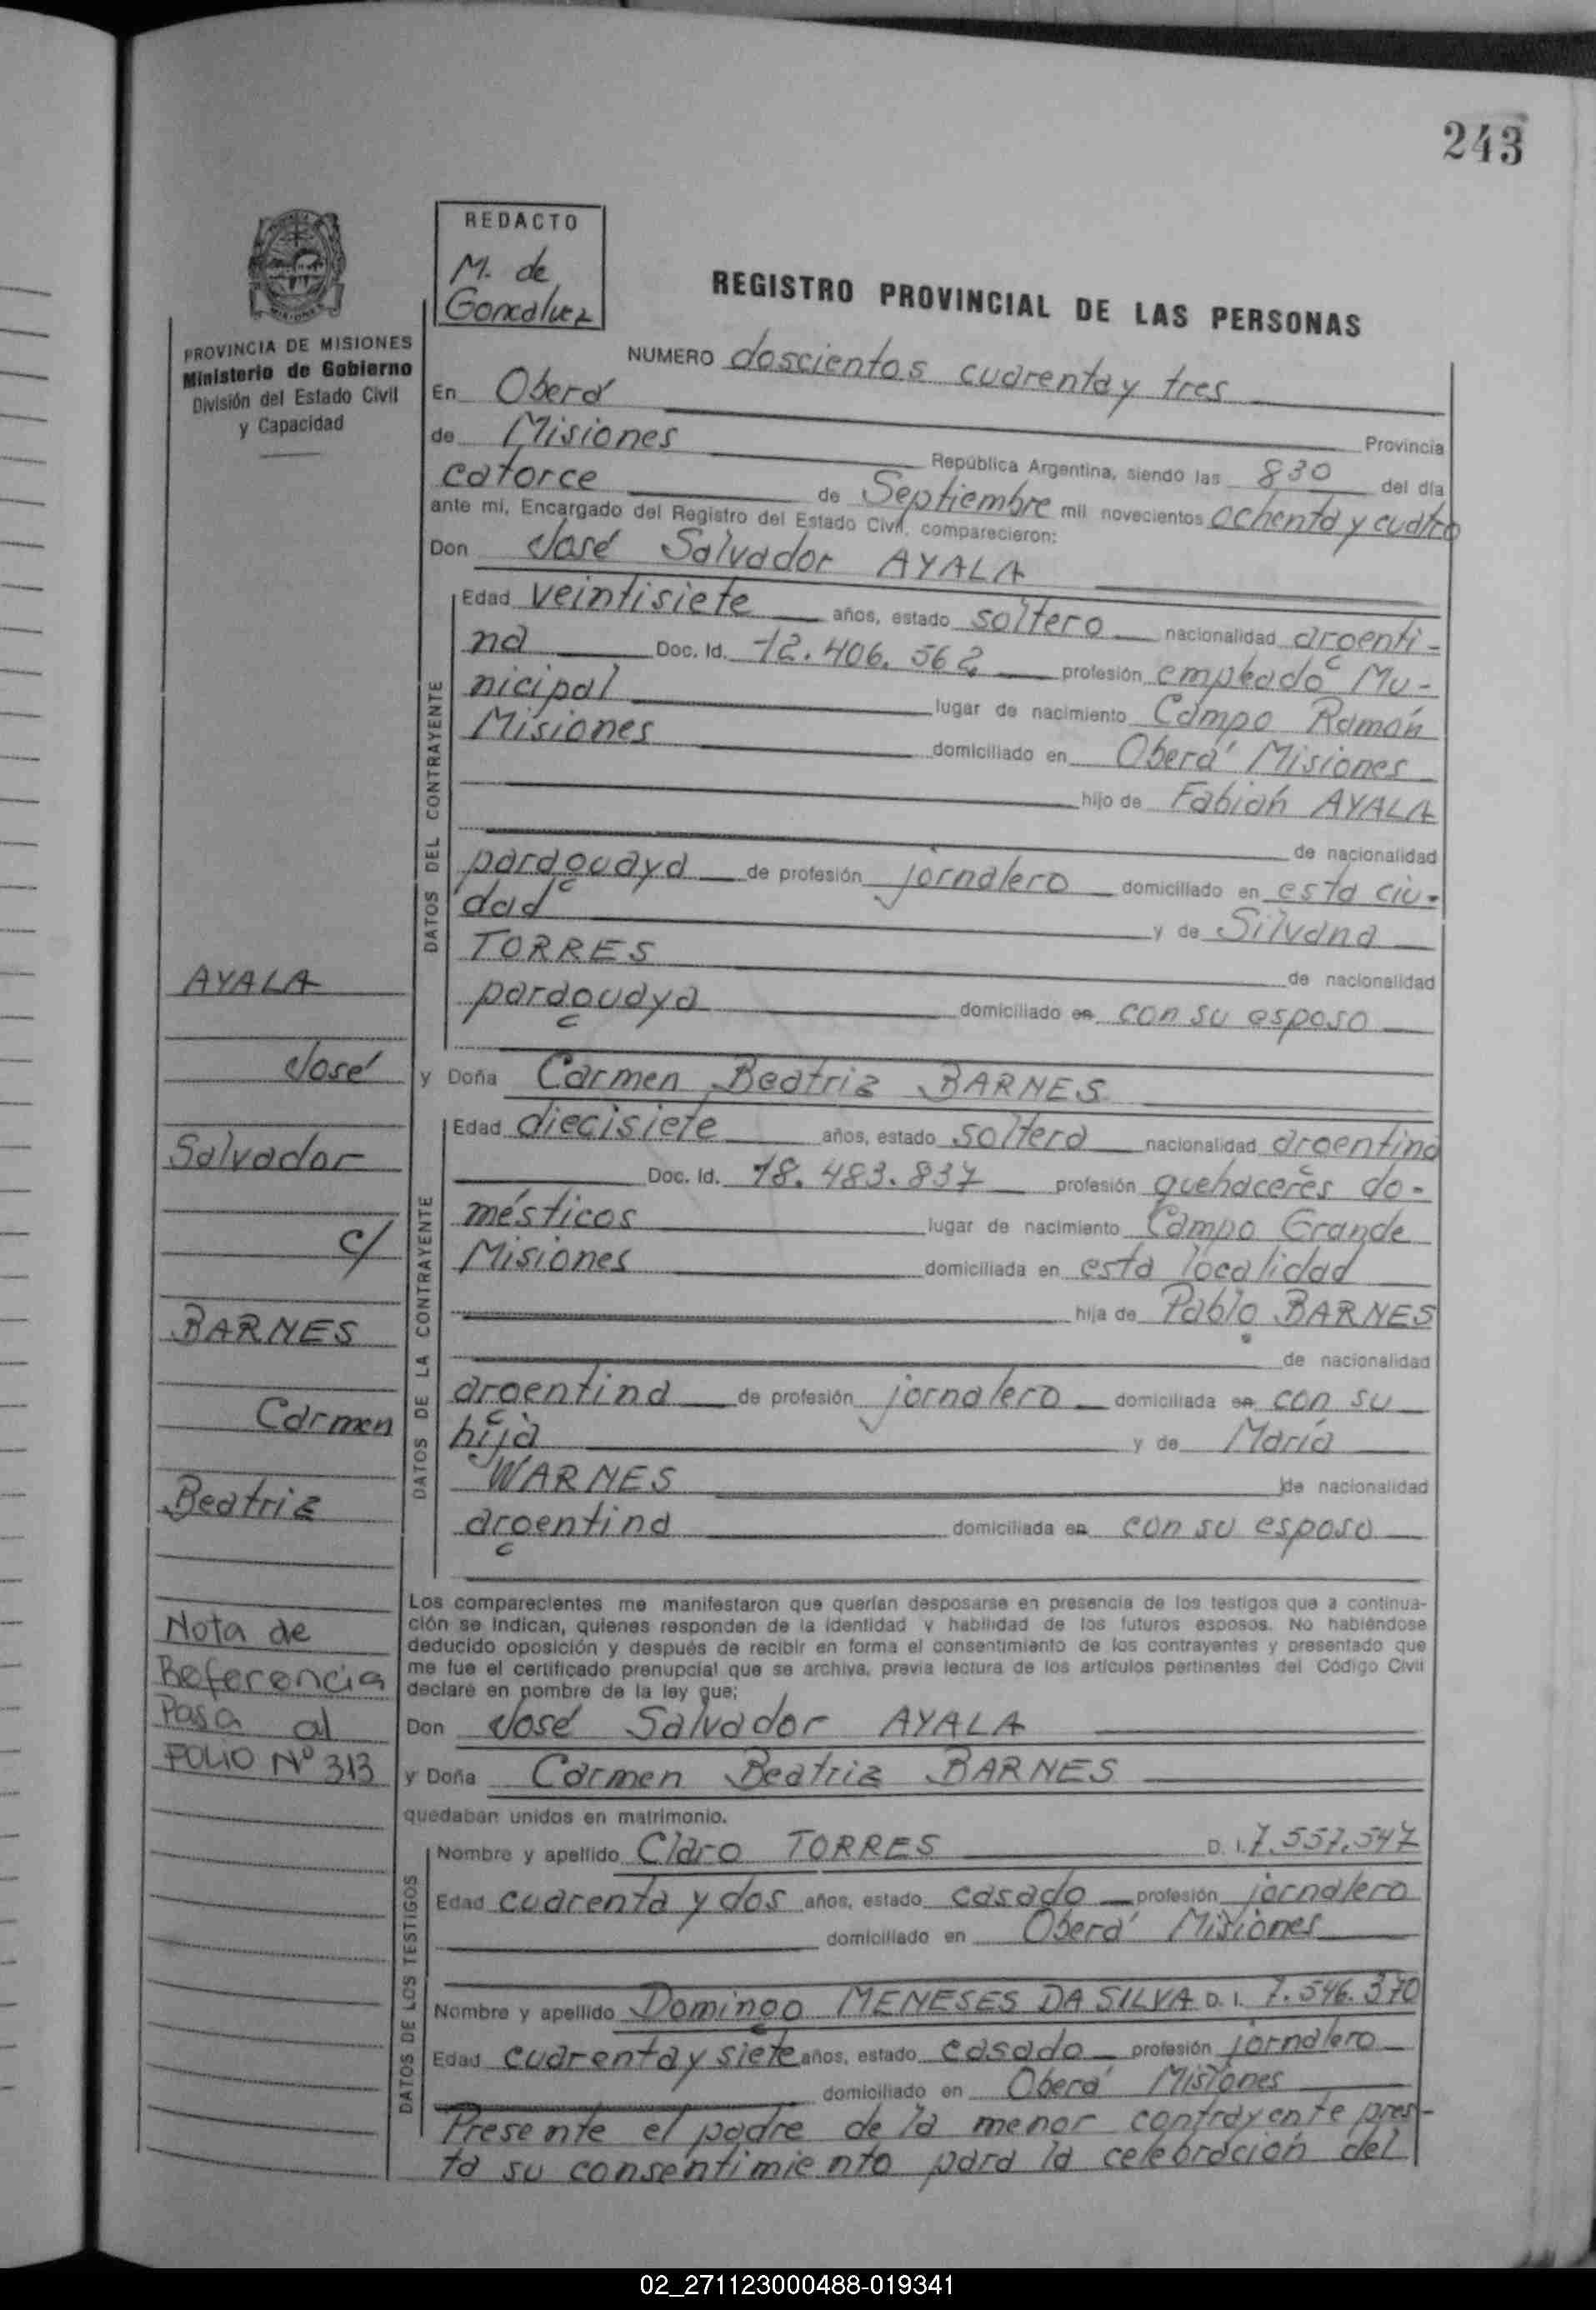 243
REDACTO
M. de
Goncalvez
REGISTRO PROVINCIAL DE LAS PERSONAS
PROVINCIA DE MISIONES
Ministerio de Gobierno
División del Estado Civil
y Capacidad
NUMERO doscientos cuarenta y tres
En Oberá
Provincia
de Misiones República Argentina, siendo las 830 del día
catorce de Septiembre mil novecientos ochenta y cuatro
ante mí, Encargado del Registro del Estado Civil, comparecieron:
Don José Salvador AYALA
DATOS DEL CONTRAYENTE
Edad veintisiete años, estado soltero nacionalidad argenti-
na Doc. Id. 12.406.562 profesión empleado Mu-
nicipal lugar de nacimiento Campo Ramón
Misiones domiciliado en Oberá Misiones
hijo de Fabián AYALA
de nacionalidad
paraguaya de profesión jornalero domiciliado en esta ciu-
dad y de Silvana
TORRES de nacionalidad
paraguaya domiciliado en con su esposo
y Doña Carmen Beatriz BARNES
DATOS DE LA CONTRAYENTE
Edad diecisiete años, estado soltera nacionalidad argentina
Doc. Id. 18.483.837 profesión quehaceres do-
mésticos lugar de nacimiento Campo Grande
Misiones domiciliada en esta localidad
hija de Pablo BARNES
de nacionalidad
argentina de profesión jornalero domiciliada en con su
hija y de María
WARNES de nacionalidad
argentina domiciliada en con su esposo
Los comparecientes me manifestaron que querían desposarse en presencia de los testigos que a continua-
ción se indican, quienes responden de la identidad y habilidad de los futuros esposos. No habiéndose
deducido oposición y después de recibir en forma el consentimiento de los contrayentes y presentado que
me fue el certificado prenupcial que se archiva, previa lectura de los artículos pertinentes del Código Civil
declaré en nombre de la ley que;
Don José Salvador AYALA
y Doña Carmen Beatriz BARNES
quedaban unidos en matrimonio.
DATOS DE LOS TESTIGOS
Nombre y apellido Claro TORRES D. I. 7.557.547
Edad cuarenta y dos años, estado casado profesión jornalero
domiciliado en Oberá Misiones
Nombre y apellido Domingo MENESES DA SILVA D. I. 7.546.370
Edad cuarenta y siete años, estado casado profesión jornalero
domiciliado en Oberá Misiones
Presente el padre de la menor contrayente pres-
ta su consentimiento para la celebración del
AYALA
José
Salvador
c/
BARNES
Carmen
Beatriz
Nota de
Referencia
Pasa al
FOLIO Nº 313
02_271123000488-019341